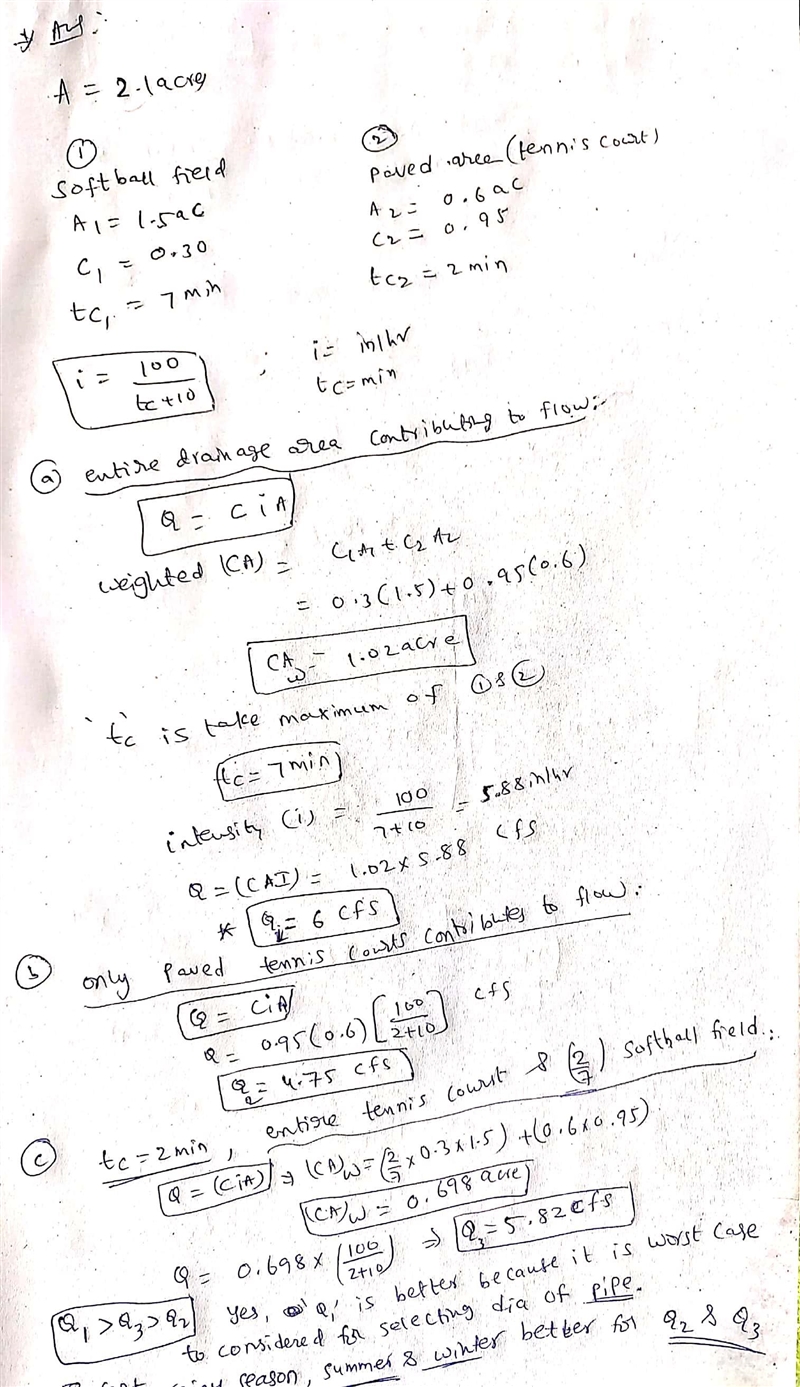 Ans :-
A = 2.1 acres
① ②
Softball field paved area (tennis court)
A1 = 1.5 ac A2 = 0.6 ac
C1 = 0.30 C2 = 0.95
tC1 = 7 min tC2 = 2 min
i = 100/(tc+10) ; i = in/hr
tc = min
ⓐ entire drainage area contributing to flow:-
Q = C i A
weighted (CA) = C1A1 + C2A2
= 0.3(1.5) + 0.95(0.6)
CAw = 1.02 acre
'tc' is take maximum of ① & ②
tc = 7 min
intensity (i) = 100/(7+10) = 5.88 in/hr
Q = (CAI) = 1.02 x 5.88 cfs
* Q1 = 6 cfs
ⓑ only paved tennis courts contributes to flow:
Q = CiA
Q = 0.95(0.6) [100/(2+10)] cfs
Q2 = 4.75 cfs
ⓒ tc = 2 min, entire tennis court & (2/7) softball field :
Q = (CiA) ⇒ (CA)w = (2/7 x 0.3 x 1.5) + (0.6 x 0.95)
(CA)w = 0.698 acre
Q = 0.698 x (100/(2+10)) ⇒ Q3 = 5.82 cfs
Q1 > Q3 > Q2 yes, 'Q1' is better because it is worst case
to considered for selecting dia of pipe.
season, summer & winter better for Q2 & Q3